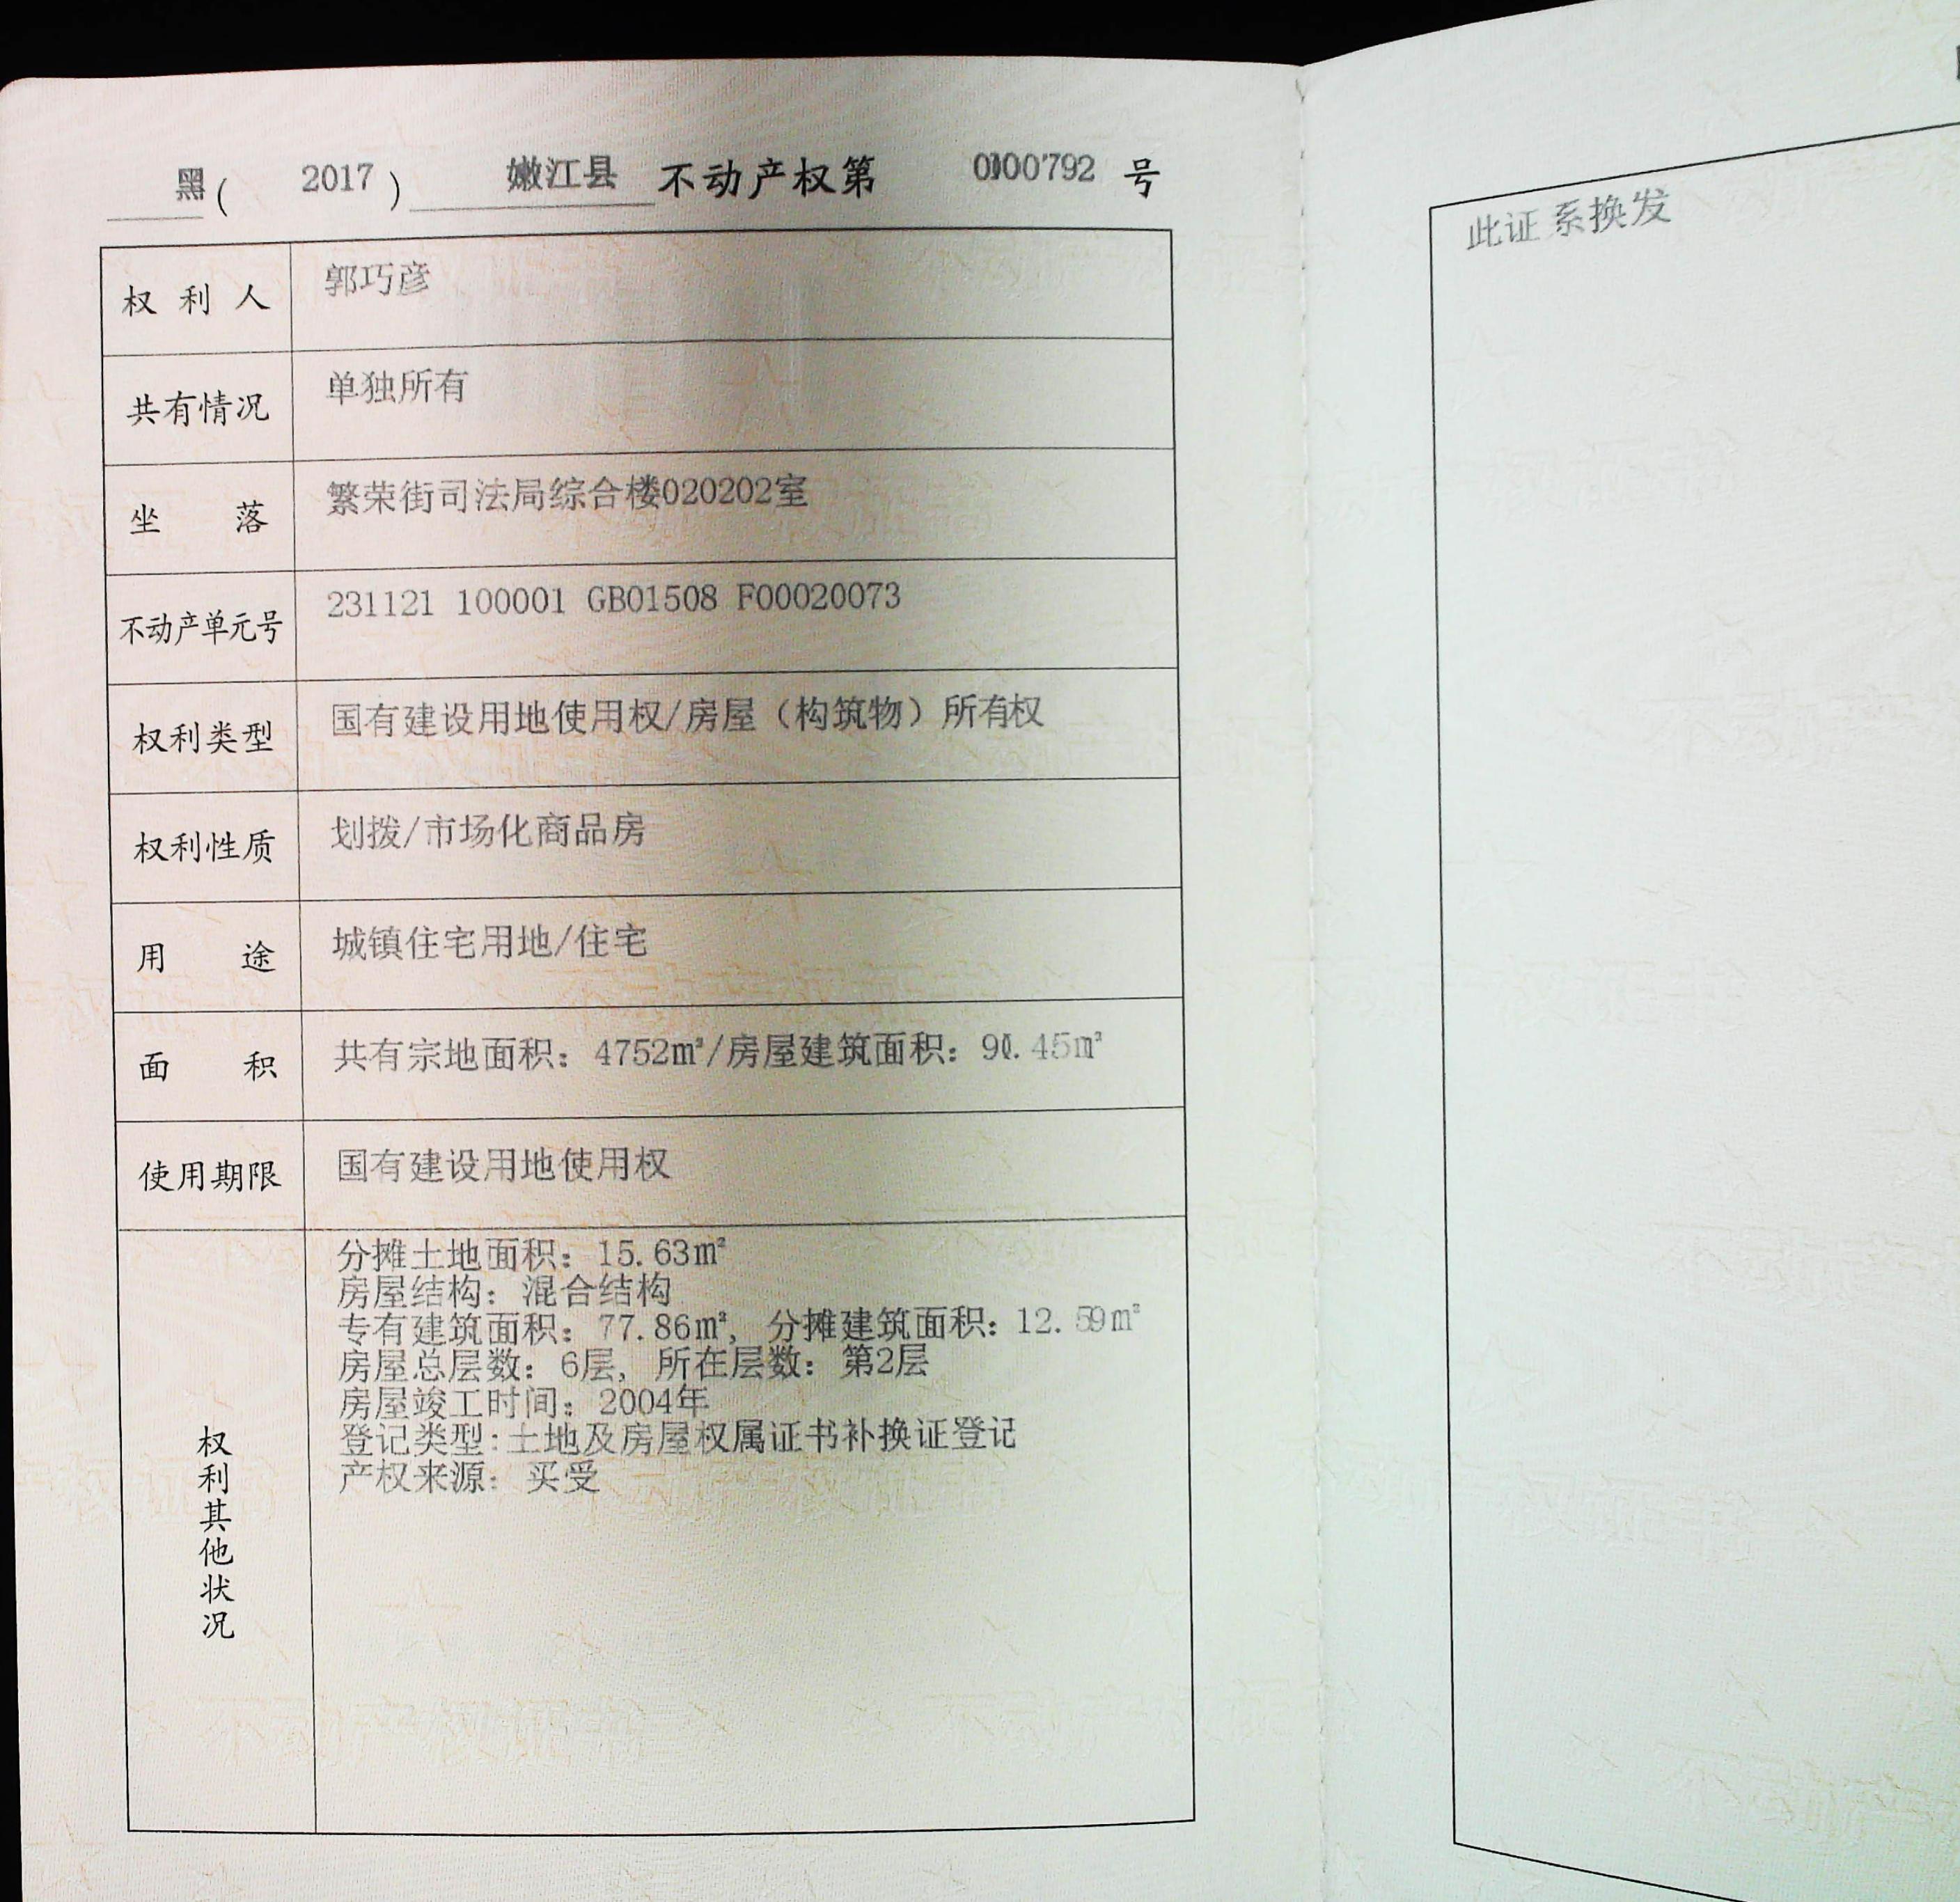 黑( 2017 ) 嫩江县 不动产权第 0000792 号
权利人 郭巧彦
共有情况 单独所有
坐落 繁荣街司法局综合楼020202室
不动产单元号 231121 100001 GB01508 F00020073
权利类型 国有建设用地使用权/房屋（构筑物）所有权
权利性质 划拨/市场化商品房
用途 城镇住宅用地/住宅
面积 共有宗地面积：4752m²/房屋建筑面积：90.45m²
使用期限 国有建设用地使用权
权利其他状况
分摊土地面积：15.63m²
房屋结构：混合结构
专有建筑面积：77.86m²，分摊建筑面积：12.59m²
房屋总层数：6层，所在层数：第2层
房屋竣工时间：2004年
登记类型:土地及房屋权属证书补换证登记
产权来源：买受
此证系换发